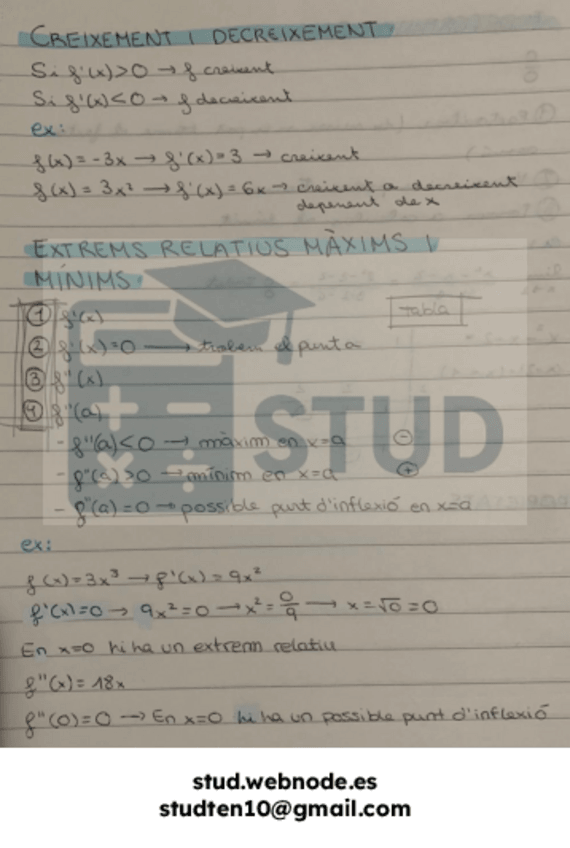 CREIXEMENT I DECREIXEMENT
Si f'(x)>0 → f creixent
Si f'(x)<0 → f decreixent
ex:
f(x) = -3x → f'(x) = 3 → creixent
f(x) = 3x² → f'(x) = 6x → creixent o decreixent
depenent de x
EXTREMS RELATIUS MÀXIMS I
MÍNIMS
① f'(x)
Tabla
② f'(x)=0 → trobem el punt a
③ f''(x)
④ f''(a)
- f''(a)<0 → màxim en x=a ⊖
- f''(a)>0 → mínim en x=a ⊕
- f''(a)=0 → possible punt d'inflexió en x=a
STUD
ex:
f(x)=3x³ → f'(x) = 9x²
f'(x)=0 → 9x²=0 → x² = 0/9 → x = √0 = 0
En x=0 hi ha un extrem relatiu
f''(x) = 18x
f''(0)=0 → En x=0 hi ha un possible punt d'inflexió
stud.webnode.es
studten10@gmail.com